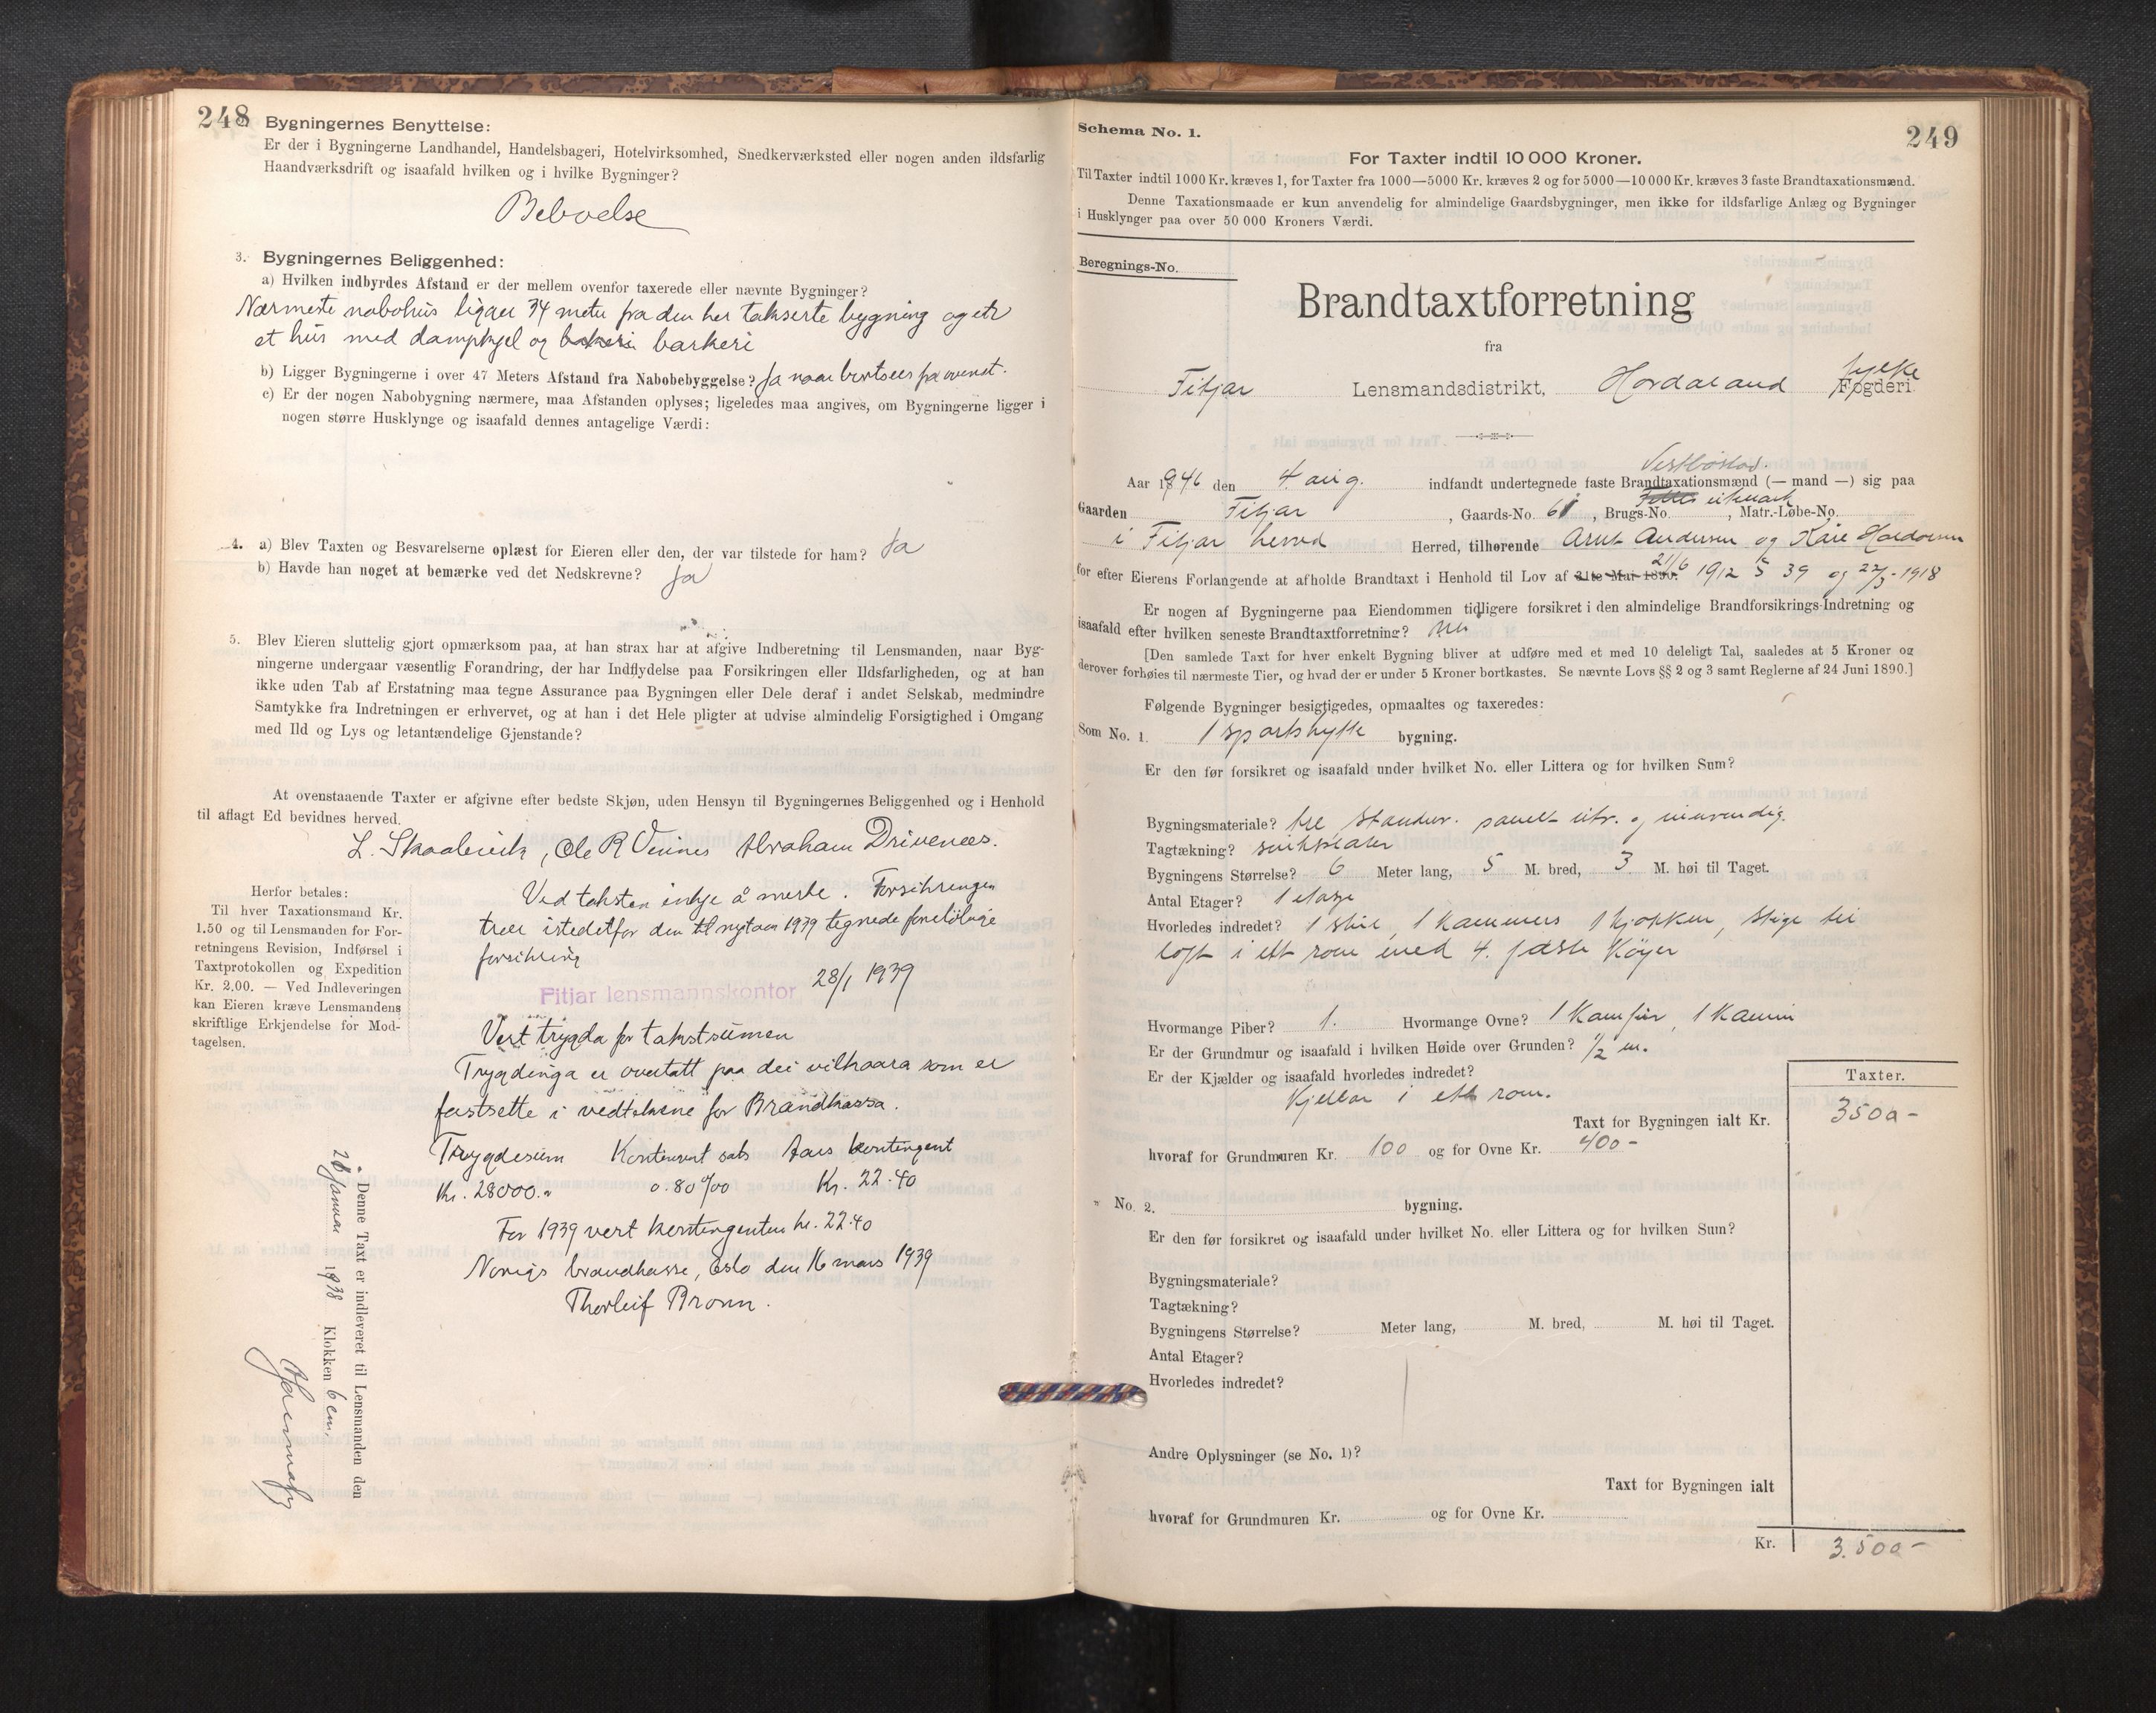 248
Bygningernes Benyttelse:
Er der i Bygningerne Landhandel, Handelsbageri, Hotelvirksomhed, Snedkerværksted eller nogen anden ildsfarlig
Haandværksdrift og isaafald hvilken og i hvilke Bygninger?
Beboelse
3. Bygningernes Beliggenhed:
a) Hvilken indbyrdes Afstand er der mellem ovenfor taxerede eller nævnte Bygninger?
Nærmeste nabohus ligger 34 meter fra den her takserte bygning og er
et hus med dampkjel og bakeri barkeri
b) Ligger Bygningerne i over 47 Meters Afstand fra Nabobebyggelse? Ja naar bortsees fra ovenst.
c) Er der nogen Nabobygning nærmere, maa Afstanden oplyses; ligeledes maa angives, om Bygningerne ligger i
nogen større Husklynge og isaafald dennes antagelige Værdi:
4. a) Blev Taxten og Besvarelserne oplæst for Eieren eller den, der var tilstede for ham? Ja
b) Havde han noget at bemærke ved det Nedskrevne? Ja
5. Blev Eieren sluttelig gjort opmærksom paa, at han strax har at afgive Indberetning til Lensmanden, naar Byg-
ningerne undergaar væsentlig Forandring, der har Indflydelse paa Forsikringen eller Ildsfarligheden, og at han
ikke uden Tab af Erstatning maa tegne Assurance paa Bygningen eller Dele deraf i andet Selskab, medmindre
Samtykke fra Indretningen er erhvervet, og at han i det Hele pligter at udvise almindelig Forsigtighed i Omgang
med Ild og Lys og letantændelige Gjenstande?
At ovenstaaende Taxter er afgivne efter bedste Skjøn, uden Hensyn til Bygningernes Beliggenhed og i Henhold
til aflagt Ed bevidnes herved.
L. Skaalevik, Ole R Vinnes Abraham Drivenees.
Herfor betales:
Til hver Taxationsmand Kr.
1.50 og til Lensmanden for For-
retningens Revision, Indførsel i
Taxtprotokollen og Expedition
Kr. 2.00. — Ved Indleveringen
kan Eieren kræve Lensmandens
skriftlige Erkjendelse for Mod-
tagelsen.
Ved taksten inkje å merke. Forsikringen
trer istedetfor den til nytaar 1939 tegnede foreløbige
forsikring
28/1 1939
Fitjar lensmannskontor
Vert trygda for takstsumen
Trygdinga er overtatt paa dei vilkaara som er
fastsette i vedtektene for Brandkassa.
Trygdesum Kontingent sats Aars kontingent
Kr. 28000.- 0.80 ‰ Kr. 22.40
For 1939 vert kontingenten kr. 22.40
Norigs brandkasse, Oslo den 16 mars 1939
Thorleif Bronn.
Denne Taxt er indleveret til Lensmanden den
28 Januar 1938 Klokken 6 em.
249
Schema No. 1.
For Taxter indtil 10 000 Kroner.
Til Taxter indtil 1000 Kr. kræves 1, for Taxter fra 1000—5000 Kr. kræves 2 og for 5000—10 000 Kr. kræves 3 faste Brandtaxationsmænd.
Denne Taxationsmaade er kun anvendelig for almindelige Gaardsbygninger, men ikke for ildsfarlige Anlæg og Bygninger
i Husklynger paa over 50 000 Kroners Værdi.
Beregnings-No.
Brandtaxtforretning
fra
Fitjar Lensmandsdistrikt, Hordaland fylke Fogderi
Vestbøstad.
Aar 1946 den 4 aug. indfandt undertegnede faste Brandtaxationsmænd (— mand —) sig paa
Gaarden Fitjar, Gaards-No. 61, Brugs-No. utmark, Matr.-Løbe-No.
i Fitjar herred Herred, tilhørende Arnt Andersen og Kåre
for efter Eierens Forlangende at afholde Brandtaxt i Henhold til Lov af 31te Mai 1890. 21/6 1912 § 39 og 22/3-1918
Er nogen af Bygningerne paa Eiendommen tidligere forsikret i den almindelige Brandforsikrings-Indretning og
isaafald efter hvilken seneste Brandtaxtforretning? Nei
[Den samlede Taxt for hver enkelt Bygning bliver at udføre med et med 10 deleligt Tal, saaledes at 5 Kroner og
derover forhøies til nærmeste Tier, og hvad der er under 5 Kroner bortkastes. Se nævnte Lovs §§ 2 og 3 samt Reglerne af 24 Juni 1890.]
Følgende Bygninger besigtigedes, opmaaltes og taxeredes:
Som No. 1. 1 sportshytte bygning.
Er den før forsikret og isaafald under hvilket No. eller Littera og for hvilken Sum?
Bygningsmateriale? tre standvr. panelt utv. og innvendig.
Tagtækning?
Bygningens Størrelse? 6 Meter lang, 5 M. bred, 3 M. høi til Taget.
Antal Etager? 1 etage
Hvorledes indredet? 1 stue, 1 kammers 1 kjøkken, stige til
loft i ett rom med 4. faste Køyer
Hvormange Piber? 1. Hvormange Ovne? 1 Kamfur, 1 Kamin
Er der Grundmur og isaafald i hvilken Høide over Grunden? 1/2 m.
Er der Kjælder og isaafald hvorledes indredet?
Kjellar i ett rom.
Taxter.
Taxt for Bygningen ialt Kr. 3500-
hvoraf for Grundmuren Kr. 100 og for Ovne Kr. 400-
" No. 2. bygning.
Er den før forsikret og isaafald under hvilket No. eller Littera og for hvilken Sum?
Bygningsmateriale?
Tagtækning?
Bygningens Størrelse? Meter lang, M. bred, M. høi til Taget.
Antal Etager?
Hvorledes indredet?
Andre Oplysninger (se No. 1)?
Taxt for Bygningen ialt
hvoraf for Grundmuren Kr. og for Ovne Kr.
Kr. 3.500-